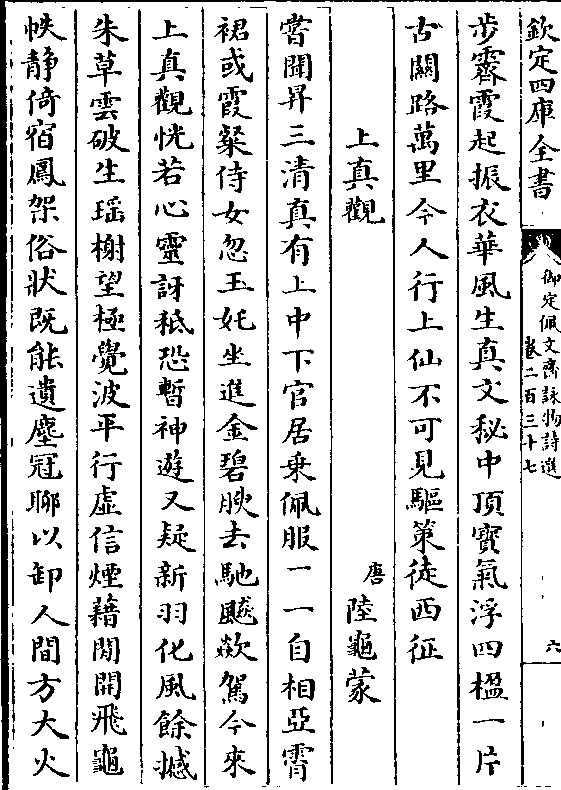 欽定四庫全書
御定佩文齋詠物詩選
卷二百三十七
六
步霽霞起振衣華風生真文秘中頂寶氣浮四楹一片
古闕路萬里今人行上仙不可見驅策徒西征
上真觀
唐 陸龜蒙
嘗聞昇三清真有上中下官居乗佩服一一自相亞霄
裙或霞粲侍女忽玉奼坐進金碧腴去馳飈歘駕今來
上真觀恍若心靈訝秪恐暫神遊又疑新羽化風餘撼
朱草雲破生瑶榭望極覺波平行虚信煙藉閒開飛龜
帙静倚宿鳳架俗狀既能遺塵冠聊以卸人間方大火